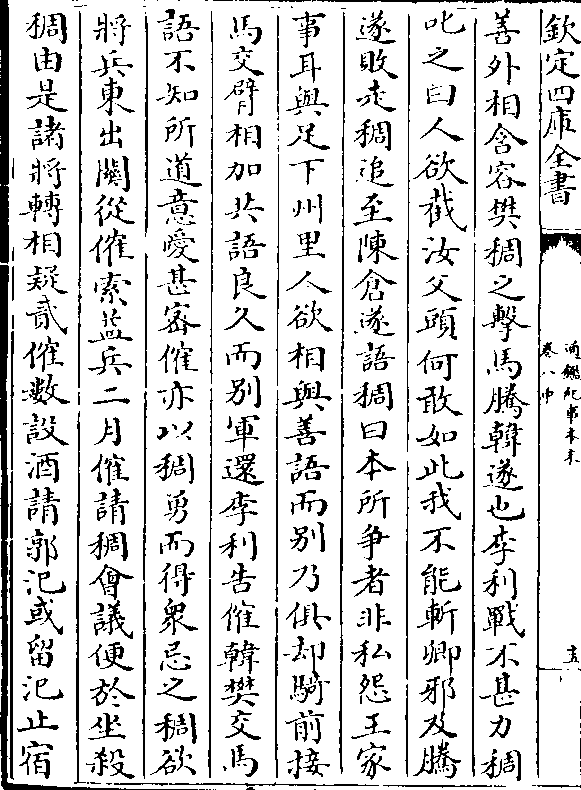 欽定四庫全書
通鑑紀事本末
卷八中
十五
善外相含容樊稠之擊馬騰韓遂也李利戰不甚力稠
叱之曰人欲截汝父頭何敢如此我不能斬卿邪及騰
遂敗走稠追至陳倉遂語稠曰本所爭者非私怨王家
事耳與足下州里人欲相與善語而别乃俱却騎前接
馬交臂相加共語良久而别軍還李利告傕韓樊交馬
語不知所道意愛甚密傕亦以稠勇而得衆忌之稠欲
將兵東出關從傕索益兵二月傕請稠會議便於坐殺
稠由是諸將轉相疑貳傕數設酒請郭汜或留汜止宿